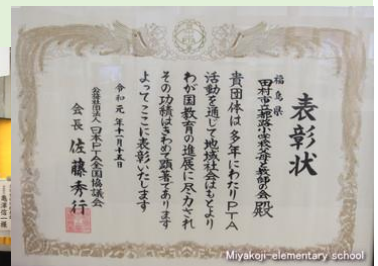 表彰状
福島県
田村市立都路小学校父母と教師の会 殿
貴団体は多年にわたりPTA
活動を通じて地域社会はもとより
わが国教育の進展に尽力され
その功績はきわめて顕著であります
よってここに表彰いたします
令和元年十一月十五日
公益社団法人 日本PTA全国協議会
会長 佐藤秀行
Miyakoji elementary school